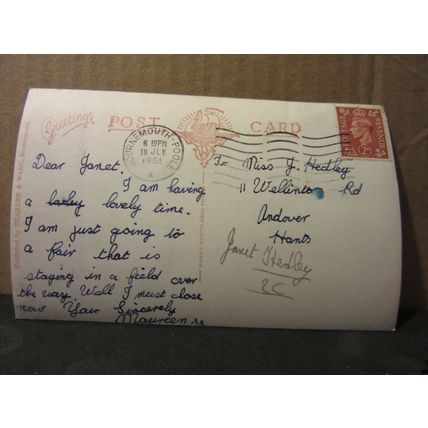 Greetings
POST CARD
BOURNEMOUTH-POOLE
6 15PM
18 JLY
1951
A
POSTAGE REVENUE
Dear Janet.
I am having
a loxley lovely time.
I am just going to
a fair that is
staying in a field over
the way Well I must close
now Your Sincerely
Maureen xx
To Miss J. Hedley
11 Wellinton Rd
Andover
Hants
Janet Hedley
2C